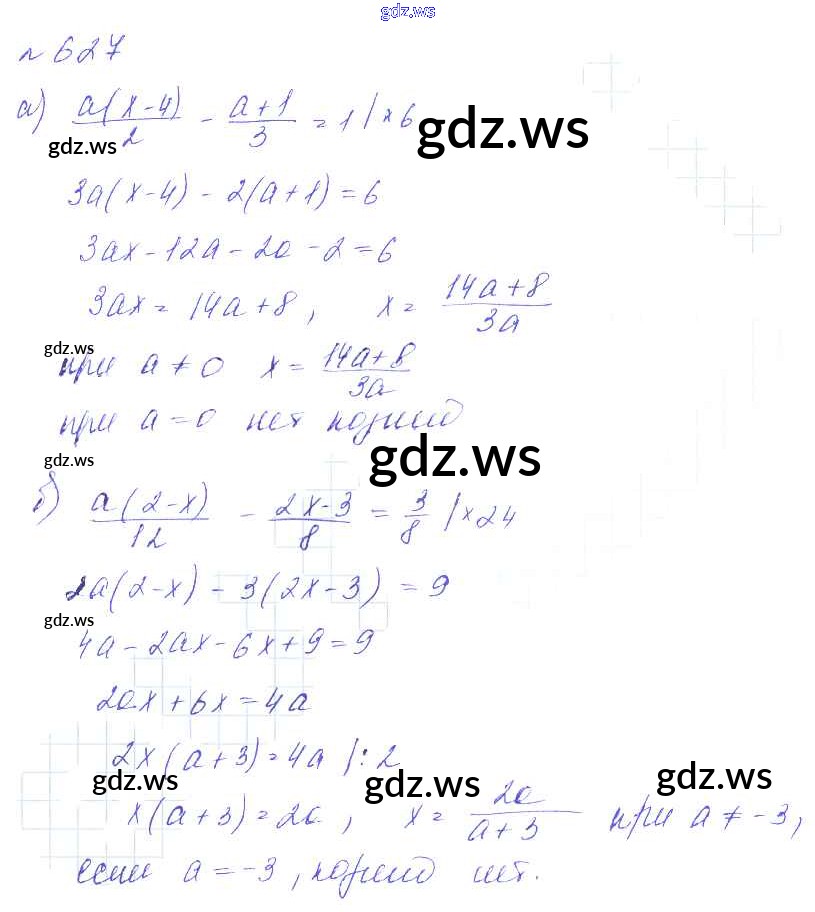 gdz.ws
№ 627
а) a(x-4)/2 - (a+1)/3 = 1 | × 6
gdz.ws
gdz.ws
3a(x-4) - 2(a+1) = 6
3ax - 12a - 2a - 2 = 6
3ax = 14a + 8, x = (14a+8)/3a
gdz.ws
при a ≠ 0 x = (14a+8)/3a
при a = 0 нет корней
gdz.ws
gdz.ws
б) a(2-x)/12 - (2x-3)/8 = 3/8 | × 24
2a(2-x) - 3(2x-3) = 9
gdz.ws
4a - 2ax - 6x + 9 = 9
2ax + 6x = 4a
2x(a+3) = 4a | : 2
gdz.ws
gdz.ws
gdz.ws
x(a+3) = 2a, x = 2a/(a+3) при a ≠ -3,
если a = -3, корней нет.